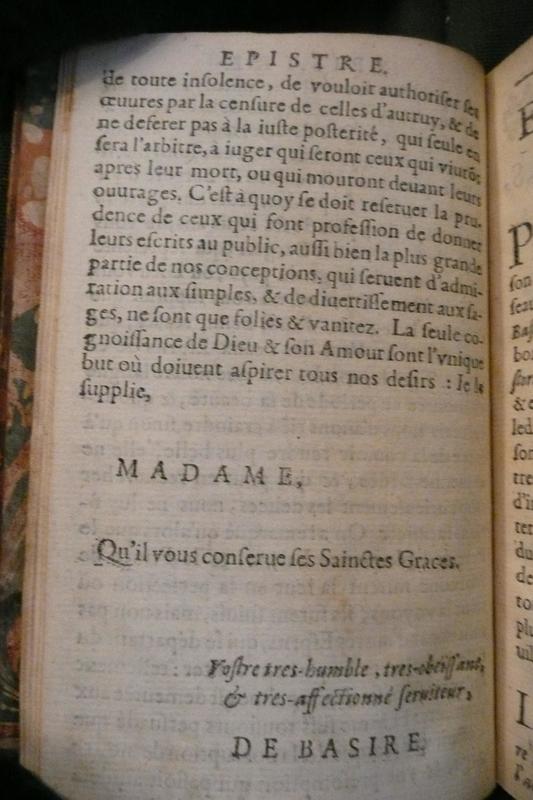 EPISTRE.
de toute insolence, de vouloir authoriser ses
œuures par la censure de celles d'autruy, & de
ne deferer pas à la iuste posterité, qui seule en
sera l'arbitre, à iuger qui seront ceux qui viurõt
apres leur mort, ou qui mouront deuant leurs
ouurages. C'est à quoy se doit reseruer la pru-
dence de ceux qui font profession de donner
leurs escrits au public, aussi bien la plus grande
partie de nos conceptions, qui seruent d'admi-
ration aux simples, & de diuertissement aux sa-
ges, ne sont que folies & vanitez. La seule co-
gnoissance de Dieu & son Amour sont l'vnique
but où doiuent aspirer tous nos desirs : Ie le
supplie,
MADAME,
Qu'il vous conserue ses Sainctes Graces.
Vostre tres-humble, tres-obeissant,
& tres-affectionné seruiteur,
DE BASIRE.